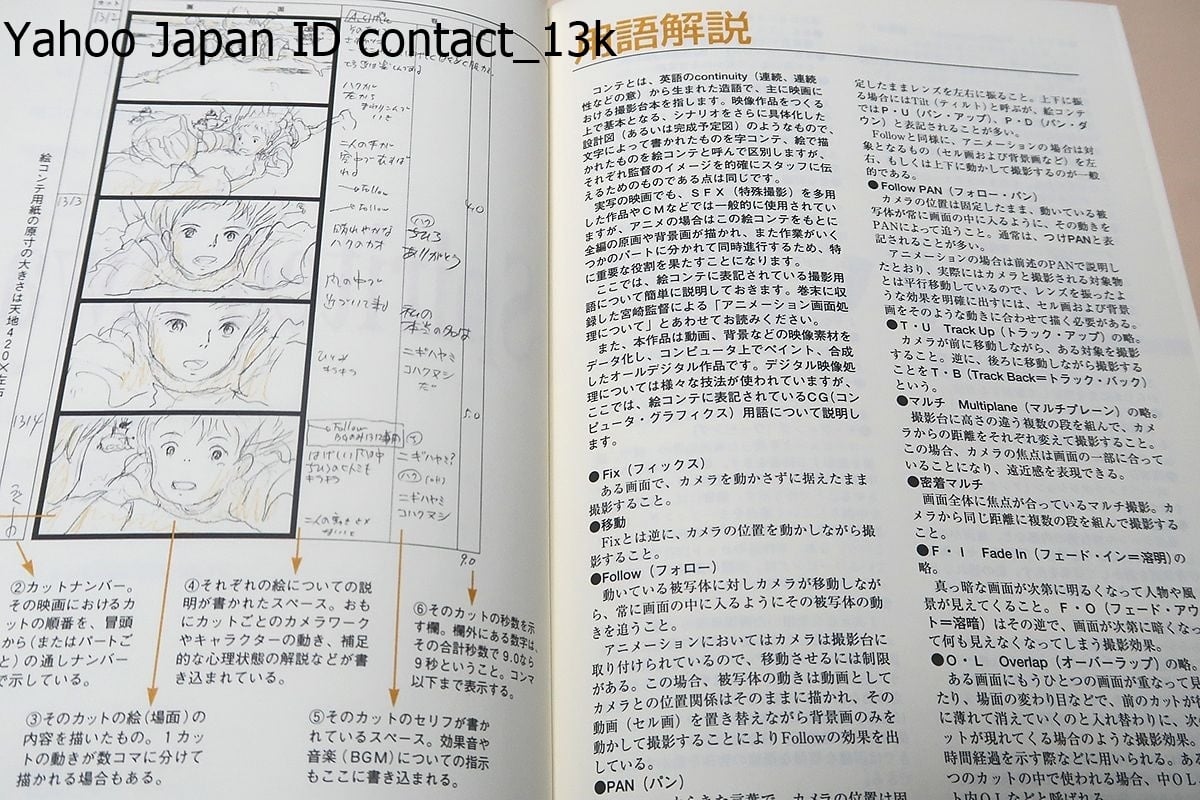 Yahoo Japan ID contact_13k
カット
画
面
1312
1313
1314
絵コンテ用紙の原寸の大きさは天地420×左右
ハクが
二人の手が
→Follow
→Follow
晴れやかな
ハクのカオ
ハク
ちひろ
ありがとう
私の
本当の名は
ニギハヤミ
コハクヌシ
だ
→Follow
ニギハヤミ?
ハク
ニギハヤミ
コハクヌシ
4.0
5.0
9.0
②カットナンバー。
その映画におけるカ
ットの順番を、冒頭
から(またはパートご
と)の通しナンバー
で示している。
④それぞれの絵についての説
明が書かれたスペース。おも
にカットごとのカメラワーク
やキャラクターの動き、補足
的な心理状態の解説などが書
き込まれている。
⑥そのカットの秒数を示
す欄。欄外にある数字は、
その合計秒数で9.0なら
9秒ということ。コンマ
以下まで表示する。
③そのカットの絵(場面)の
内容を描いたもの。1カッ
トの動きが数コマに分けて
描かれる場合もある。
⑤そのカットのセリフが書か
れているスペース。効果音や
音楽(BGM)についての指示
もここに書き込まれる。
用語解説
コンテとは、英語のcontinuity(連続、連続
性などの意)から生まれた造語で、主に映画に
おける撮影台本を指します。映像作品をつくる
上で基本となる、シナリオをさらに具体化した
設計図(あるいは完成予定図)のようなもので、
文字によって書かれたものを字コンテ、絵で描
かれたものを絵コンテと呼んで区別しますが、
それぞれ監督のイメージを的確にスタッフに伝
えるためのものである点は同じです。
実写の映画でも、SFX(特殊撮影)を多用
した作品やCMなどでは一般的に使用されてい
ますが、アニメの場合はこの絵コンテをもとに
全編の原画や背景画が描かれ、また作業がいく
つかのパートに分かれて同時進行するため、特
に重要な役割を果たすことになります。
ここでは、絵コンテに表記されている撮影用
語について簡単に説明しておきます。巻末に収
録した宮崎監督による「アニメーション画面処
理について」とあわせてお読みください。
また、本作品は動画、背景などの映像素材を
データ化し、コンピュータ上でペイント、合成
したオールデジタル作品です。デジタル映像処
理については様々な技法が使われていますが、
ここでは、絵コンテに表記されているCG(コン
ピュータ・グラフィクス)用語について説明し
ます。
●Fix(フィックス)
ある画面で、カメラを動かさずに据えたまま
撮影すること。
●移動
Fixとは逆に、カメラの位置を動かしながら撮
影すること。
●Follow(フォロー)
動いている被写体に対しカメラが移動しなが
ら、常に画面の中に入るようにその被写体の動
きを追うこと。
アニメーションにおいてはカメラは撮影台に
取り付けられているので、移動させるには制限
がある。この場合、被写体の動きは動画として
カメラとの位置関係はそのままに描かれ、その
動画(セル画)を置き替えながら背景画のみを
動かして撮影することによりFollowの効果を出
している。
●PAN(パン)
定したままレンズを左右に振ること。上下に振
る場合にはTilt(ティルト)と呼ぶが、絵コンテ
ではP・U(パン・アップ)、P・D(パン・ダ
ウン)と表記されることが多い。
Followと同様に、アニメーションの場合は対
象となるもの(セル画および背景画など)を左
右、もしくは上下に動かして撮影するのが一般
的である。
●Follow PAN(フォロー・パン)
カメラの位置は固定したまま、動いている被
写体が常に画面の中に入るように、その動きを
PANによって追うこと。通常は、つけPANと表
記されることが多い。
アニメーションの場合は前述のPANで説明し
たとおり、実際にはカメラと撮影される対象物
とは平行移動しているので、レンズを振ったよ
うな効果を明確に出すには、セル画および背景
画をそのような動きに合わせて描く必要がある。
●T・U Track Up(トラック・アップ)の略。
カメラが前に移動しながら、ある対象を撮影
すること。逆に、後ろに移動しながら撮影する
ことをT・B(Track Back=トラック・バック)
という。
●マルチ Multiplane(マルチプレーン)の略。
撮影台に高さの違う複数の段を組んで、カメ
ラからの距離をそれぞれ変えて撮影すること。
この場合、カメラの焦点は画面の一部に合って
いることになり、遠近感を表現できる。
●密着マルチ
画面全体に焦点が合っているマルチ撮影。カ
メラから同じ距離に複数の段を組んで撮影する
こと。
●F・I Fade In(フェード・イン=溶明)の
略。
真っ暗な画面が次第に明るくなって人物や風
景が見えてくること。F・O(フェード・アウ
ト=溶暗)はその逆で、画面が次第に暗くなっ
て何も見えなくなってしまう撮影効果。
●O・L Overlap(オーバーラップ)の略。
ある画面にもうひとつの画面が重なって見
たり、場面の変わり目などで、前のカットが
に薄れて消えていくのと入れ替わりに、次
ットが現れてくる場合のような撮影効果。
時間経過を示す際などに用いられる。ある
つのカットの中で使われる場合、中O・L
ト内O・Lなどと呼ばれる。